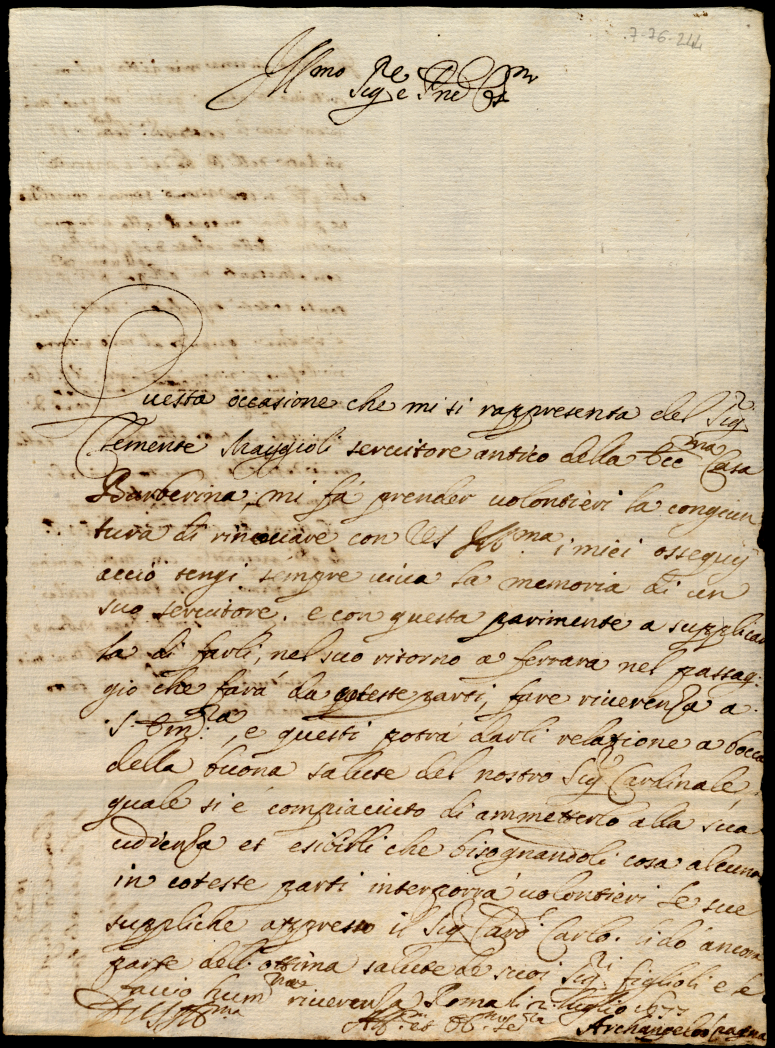 7-76-244
Ill.mo Sig.re e Pne
Questa occasione che mi si rappresenta del Sig.r
Clemente Maggioli seruitore antico della Ecc.ma Casa
Barberina, mi fá prender uolontieri la congiun
tura di rinouare con VS Ill.ma i miei ossequij
acciò tengi sempre uiua la memoria di un
suo seruitore. e con questa parimente a supplicar
la di farli, nel suo ritorno a ferrara nel passag:
gio che fará da coteste parti, fare riuerenza a
S. Em.za, e questi potrá darli relazione a bocca
della buona salute del nostro Sig.r Cardinale,
quale si é compiaciuto di ammetterlo alla sua
udienza et esibirli che bisognandoli cosa alcuna
in coteste parti interporrá uolontieri le sue
suppliche appresso il Sig.r Card.l Carlo. li dó ancora
parte dell'ottima salute de suoi Sig.ri figlioli e le
faccio hum.ma riuerenza Roma li 2 luglio 1677
Archangelo Spagna